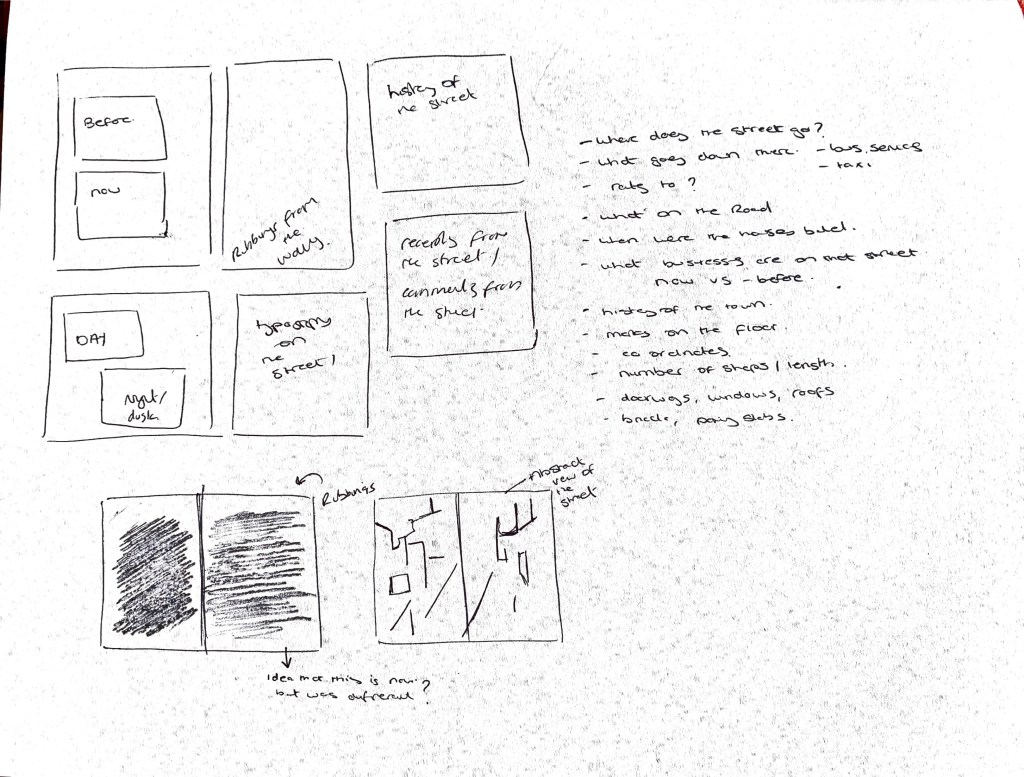 Before
now
Rubbings from
the
walls.
history of
the street
recently from
the street /
comments from
the street.
DAY
night/
dusk
typography
on
the
street /
- where does the street go?
- what goes down there. - bus services
- taxi
- to ?
- what on the Road
- when were the houses build.
- what are on that street
now vs - before.
- history of the town.
- marks on the floor.
- co ordinates.
- number of steps / length.
- doorways, windows, roofs
- paving slabs.
Rubbings
Abstract
view of
the
street
Idea that this is now ?
but was different